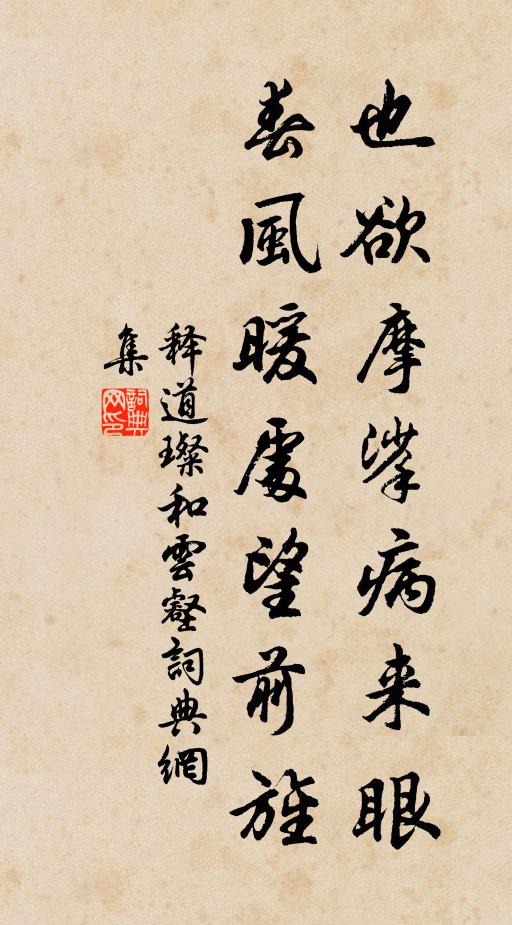 也欲摩挲病来眼
春風暖處望前旌
释道璨和雲壑詞典網
集
詞典網印